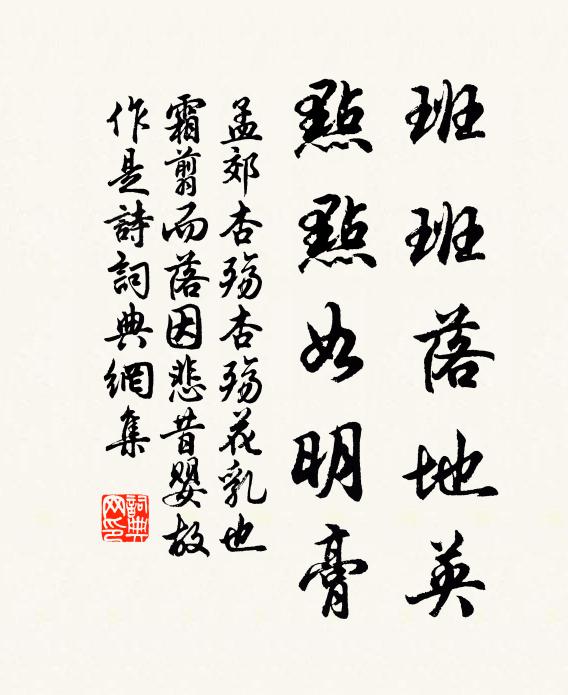 班班落地英
點點如明膏
孟郊杏殤杏殤花乳也
霜翦而落因悲昔嬰故
作是詩詞典網集
詞典
网印